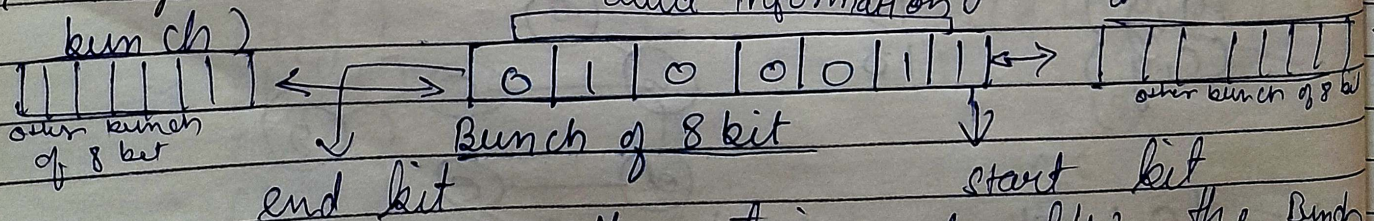 data information
bunch)
0 1 0 0 0 1 1
other bunch
of 8 bit
Bunch of 8 bit
other bunch of 8 bit
end bit
start bit
the Bunch